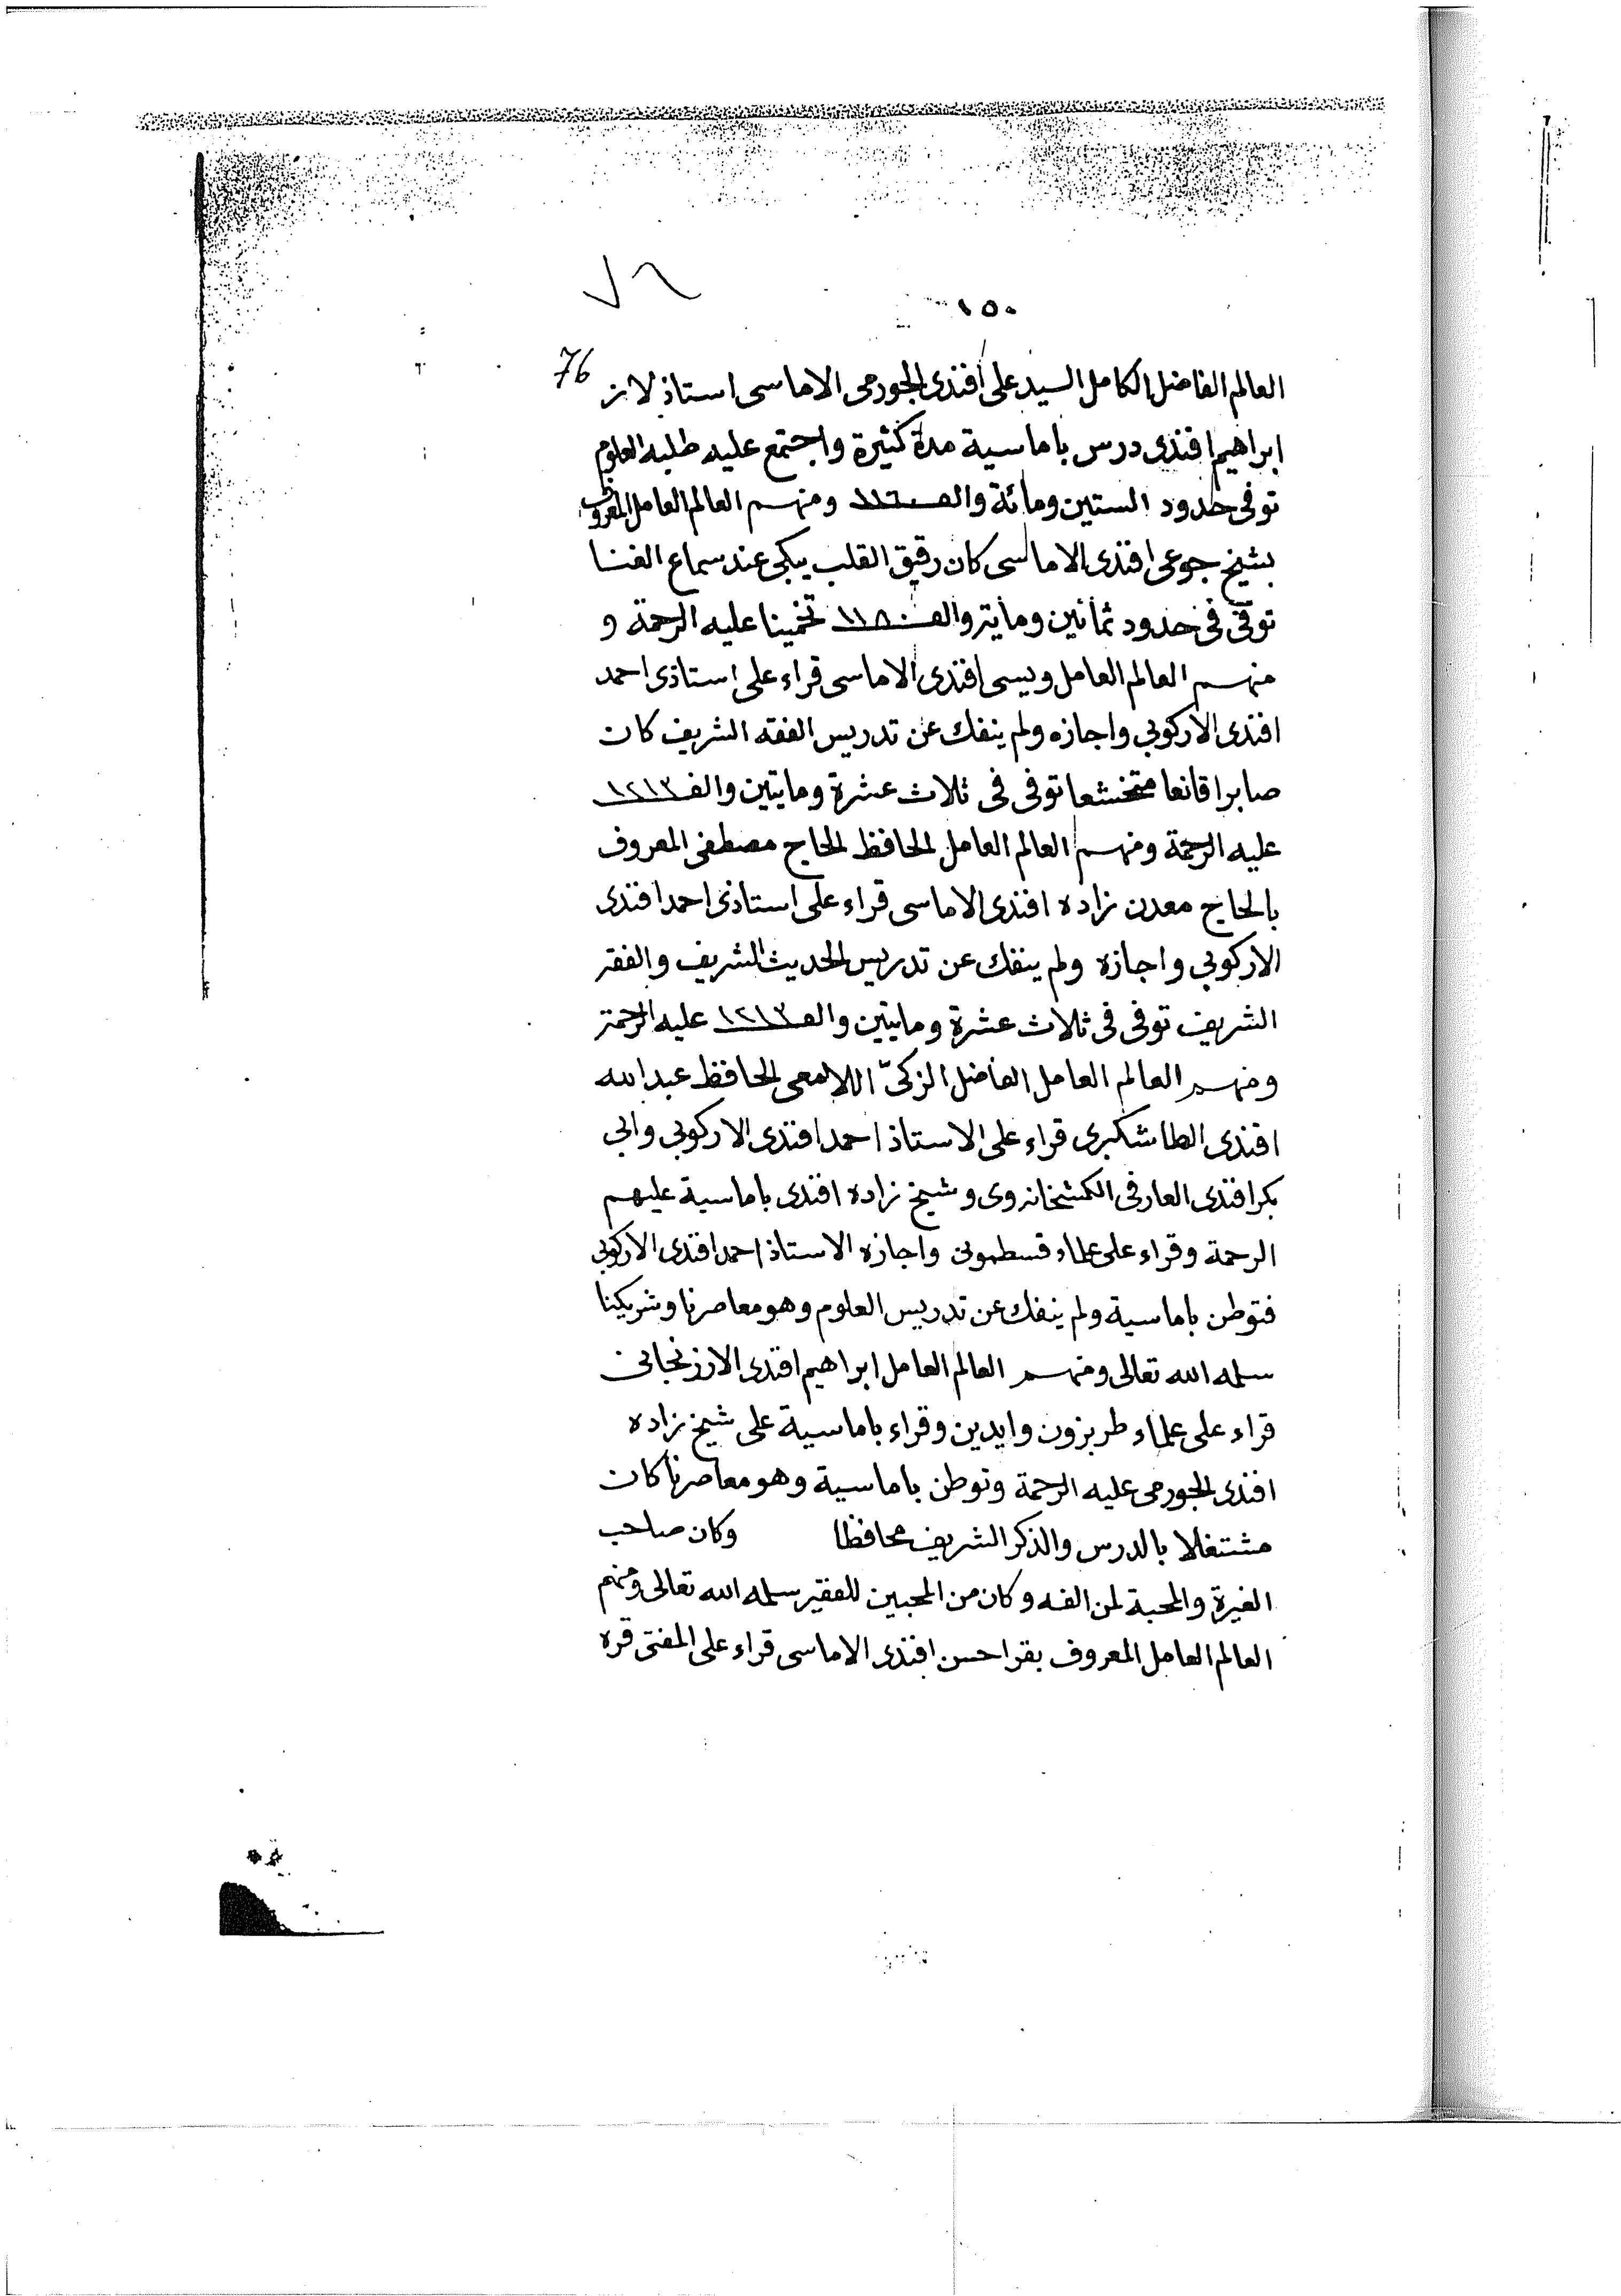 ٧٦
١٥٠
76
العالم الفاضل الكامل السيد على افندى الجورمى الاماسى استاذ لاز
ابراهيم افندى درس باماسية مدة كثيرة واجتمع عليه طلبه العلوم
توفى حدود الستين ومائة والف ١١٦٠ ومنهم العالم العامل المعروف
بشيخ جوعى افندى الاماسى كان رقيق القلب يبكى عند سماع الغنا
توفى فى حدود ثمانين ومايه والف ١١٨٠ تخمينا عليه الرحمة و
منهم العالم العامل ويسى افندى الاماسى قراء على استاذى احمد
افندى الاركوبي واجازه ولم ينفك عن تدريس الفقه الشريف كان
صابرا قانعا متخشعا توفى فى ثلاث عشرة ومايتين والف ١٢١٣
عليه الرحمة ومنهم العالم العامل الحافظ الحاج مصطفى المعروف
بالحاج معدن زاده افندى الاماسى قراء على استاذى احمد افندى
الاركوبي واجازه ولم ينفك عن تدريس الحديث الشريف والفقه
الشريف توفى فى ثلاث عشرة ومايتين والف ١٢١٣ عليه الرحمة
ومنهم العالم العامل الفاضل الزكىّ اللالمعى الحافظ عبد الله
افندى الطاشكبرى قراء على الاستاذ احمد افندى الاركوبي وابي
بكر افندى العارفى الكمشخانه وى وشيخ زاده افندى باماسية عليهم
الرحمة وقراء على علماء قسطمونى واجازه الاستاذ احمد افندى الاركوبي
فتوطن باماسية ولم ينفك عن تدريس العلوم وهو معاصرنا وشريكنا
سلمه الله تعالى ومنهم العالم العامل ابراهيم افندى الارزنجانى
قراء على علماء طربزون وايدين وقراء باماسية على شيخ زاده
افندى الجورمى عليه الرحمة وتوطن باماسية وهو معاصرنا كان
مشتغلا بالدرس والذكر الشريف محافظا وكان صاحب
الغيرة والمحبة لمن الفه وكان من المحبين للفقير سلمه الله تعالى ومنهم
العالم العامل المعروف بقرا حسن افندى الاماسى قراء على المفتى قره